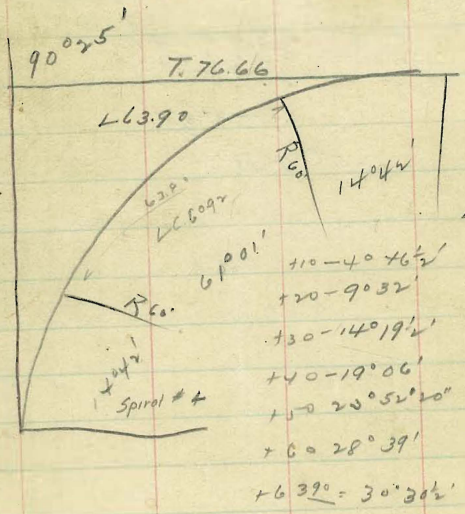 90°25'
T. 76.66
L 63.90
R 60'
14°42'
63.90
LC 60.92
61°01'
R 60.
14°42'
Spiral #4
+10 - 4° 46 1/2'
+20 - 9° 32'
+30 - 14° 19 1/2'
+40 - 19° 06'
+50 23° 52' 20"
+60 28° 39'
+6 390 = 30° 30 1/2'